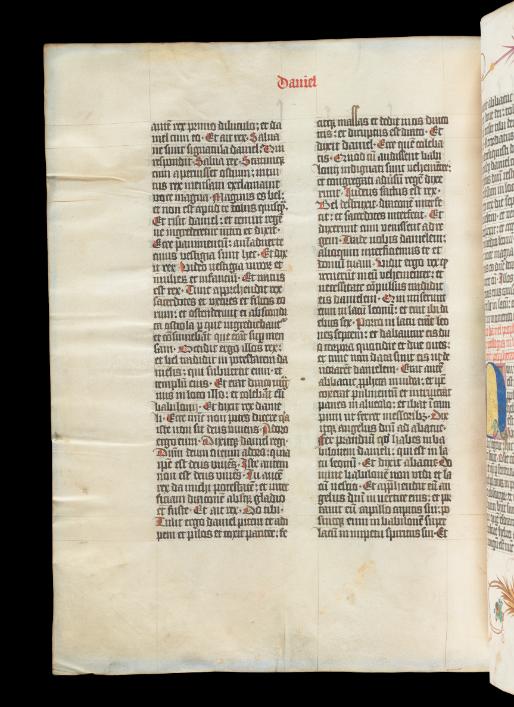 Daniel
autē rex primo diluculo: et da
niel cum eo. Et ait rex. Salua
ne sunt signacula daniel? Qui
respondit. Salua rex. Statimqȝ
cum aperuisset ostium: intui
tus rex mensam exclamauit
voce magna. Magnus es bel:
et non est apud te dolus quisqȝ.
Et risit daniel: et tenuit regē
ne ingrederetur intro et dixit.
Ecce pauimentū: aīaduerte
cuius vestigia sunt hec. Et dix
it rex. Video vestigia virorȝ et
mulierȝ et infantiū. Et iratus
est rex. Tunc apprehendit rex
sacerdotes et vxores et filios eo
rum: et ostenderunt ei abscondi
ta ostiola ꝑ que ingrediebant᷑
et cōsumebant que erāt sup men
sam. Occidit ergo illos rex:
et bel tradidit in potestatem da
nielis: qui subuertit eum et
templū eius. Et erat draco mag
nus in loco illo: et colebāt eū
babilonij. Et dixit rex danie
li. Ecce nūc non potes dicere qa
iste non sit deus viuens. Adora
ergo eum. Dixitqȝ daniel regi.
Dūm deum meum adoro: quia
ipē est deus viuēs. Iste autem
non est deus viuēs. Tu autē
rex da michi potestatē: et inter
ficiam draconē absqȝ gladio
et fuste. Et ait rex. Do tibi.
Tulit ergo daniel picem et adi
pem et pilos et coxit pariter: fe
citqȝ massas et dedit in os draco
nis: et diruptus est draco. Et
dixit daniel. Ecce quē coleba
tis. Quod cū audissent babi
lonij indignati sunt vehemēter:
et congregati aduersū regē dixe
runt. Iudeus factus est rex.
Bel destruxit. draconē interfe
cit: et sacerdotes interfecit. Et
dixerunt cum venissent ad re
gem. Trade nobis danielem:
alioquin interficiemus te et
domū tuam. Vidit ergo rex qȝ
irruerēt in eū vehementer: et
necessitate cōpulsus tradidit
eis danielem. Qui miserunt
eum in lacū leonū: et erat ibi di
ebus sex. Porro in lacu erāt leo
nes septem: et dabantur eis du
o corpora quotidie et due oues:
et tunc non data sunt eis vt de
uorarēt danielem. Erat autē
abbacuc ꝓpheta in iudea: et ipē
coxerat pulmentū et intriuerat
panes in alueolo: et ibat in cam
pum vt ferret messoribȝ. Dix
itqȝ angelus dn̄i ad abacuc.
Fer prandiū qd habes in ba
bilonem danieli: qui est in la
cu leonū. Et dixit abacuc. Do
mine babilonē non vidi et la
cū nescio. Et apprehēdit eū an
gelus dn̄i in vertice eius: et por
tauit eū capillo capitis sui: po
suitqȝ eum in babilonē supra
lacū in impetu spiritus sui. Et